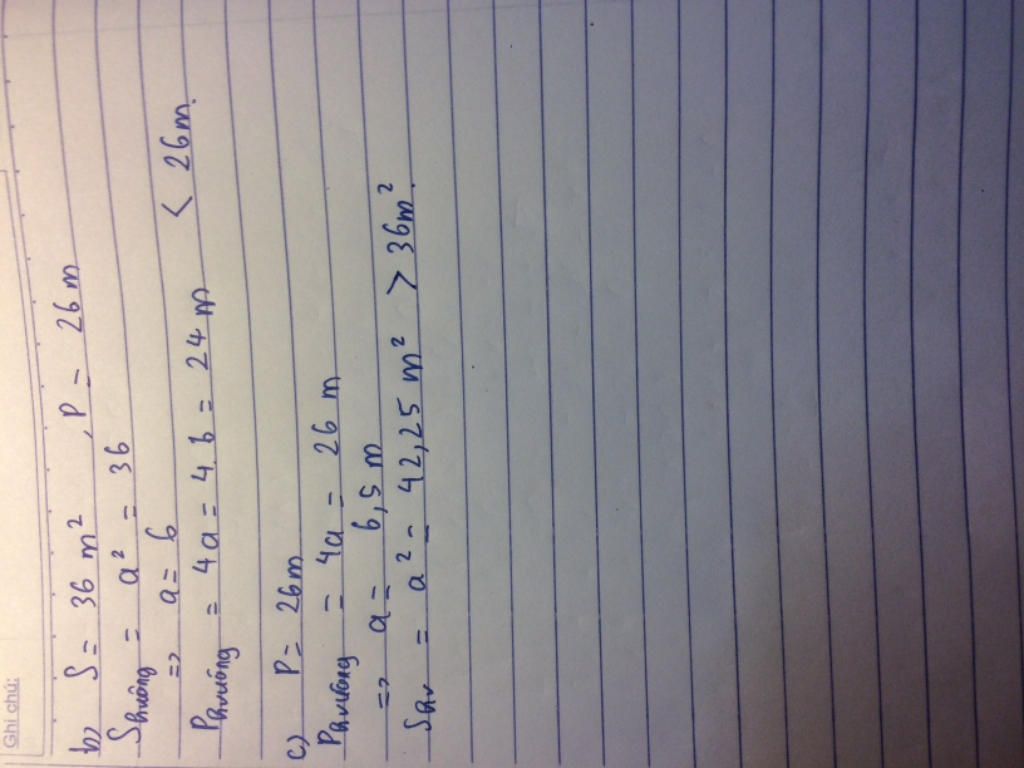 Ghi chú:
b) S = 36 m² , P = 26 m
S hvuông = a² = 36
=> a = 6
P hvuông = 4a = 4.6 = 24 m < 26m.
c) P = 26m
P hvuông = 4a = 26 m
=> a = 6,5 m
S hv = a² = 42,25 m² > 36m².